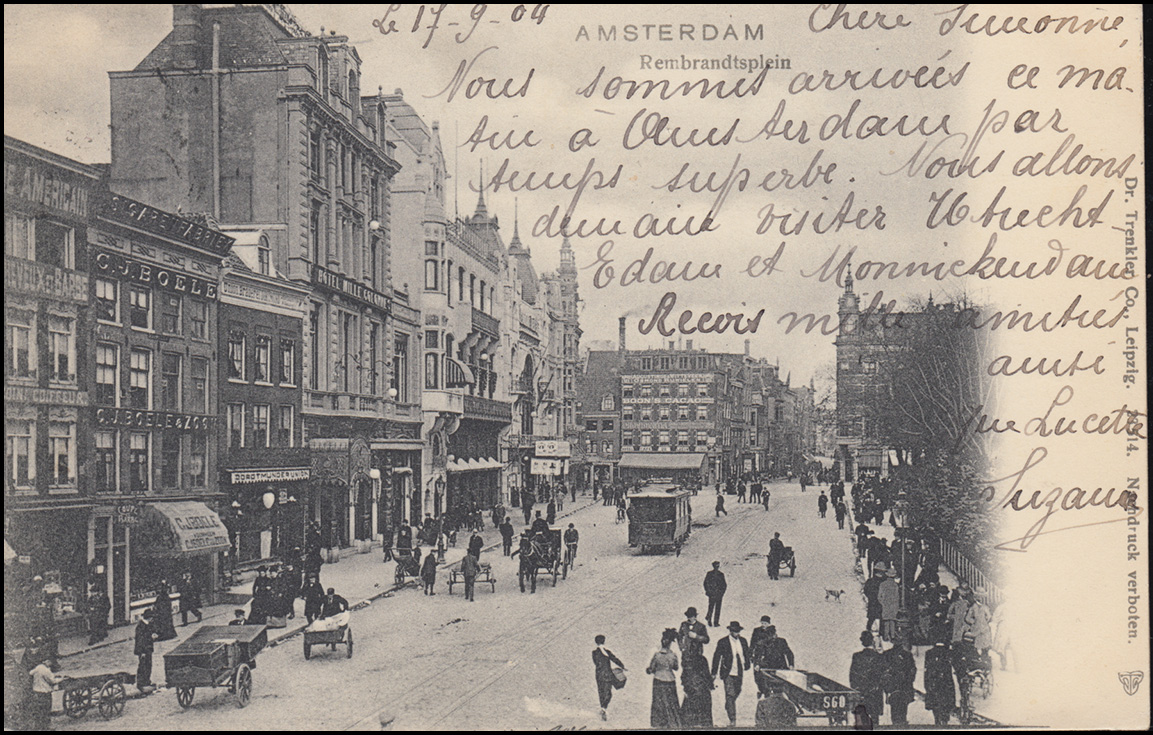 Le 17-9-04
Chère Simonne,
AMSTERDAM
Rembrandtsplein
Nous sommes arrivées ce ma-
tin à Amsterdam par
temps superbe. Nous allons
demain visiter Utrecht
Edam et Monnickendam
Reçois mille amitiés
ainsi
que Lucette
Suzanne
Dr. Trenkler Co., Leipzig. 14. Nachdruck verboten.
AMERICAIN
C.J. BOELE
HÔTEL MILLE COLONNES
C.J. BOELE & ZOON
C.J. BOELE
DORTMUNDER UNION
BOON'S CACAO
SGO